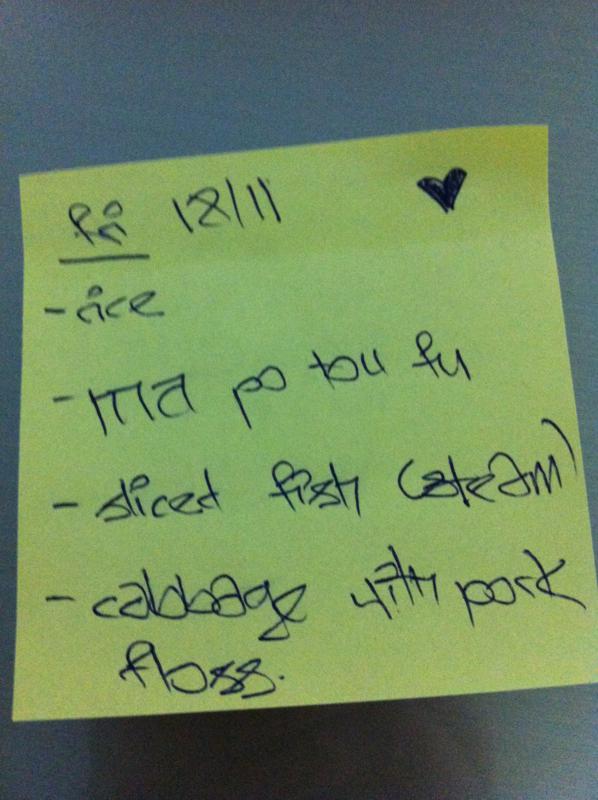 Fri 18/11
- rice
- ma po tou fu
- sliced fish (steam)
- cabbage with pork
floss.